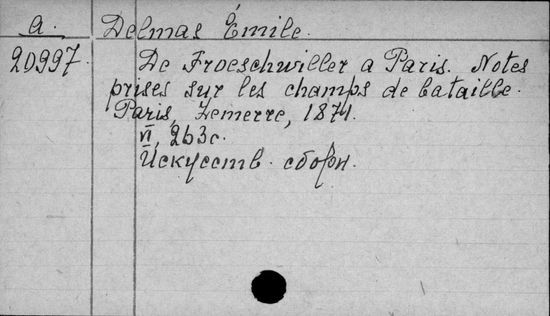 a. Delmas Émile.
20997. De Froeschwiller a Paris. Notes
prises sur les champs de bataille.
Paris, Lemerre, 1871.
VI, 263 с.
Искусств. сборн.